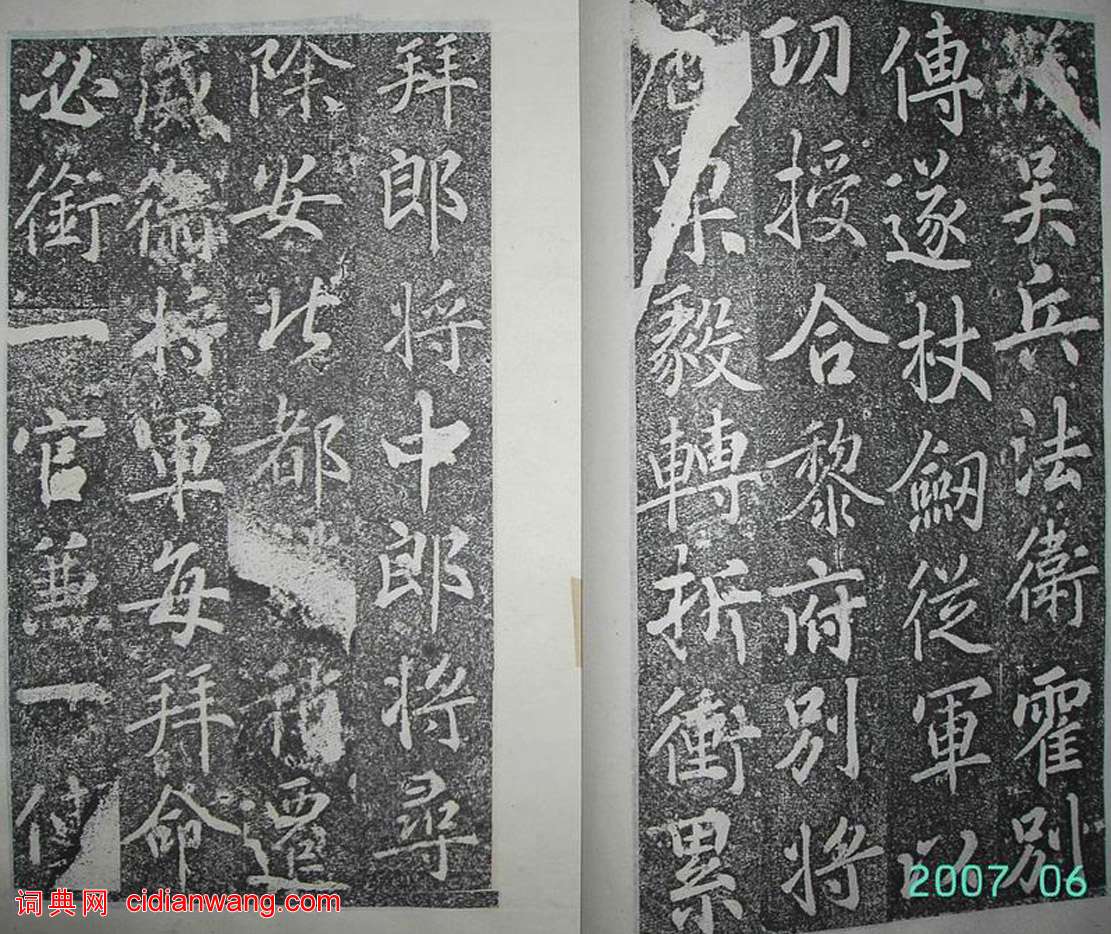 吴兵法衛霍別
傳遂杖劒從軍以
功授合黎府別將
果毅轉折衝累
拜郎將中郎將尋
除安北都稍遷
威衛將軍每拜命
必銜一官兼一使
2007 06
词典网 cidianwang.com